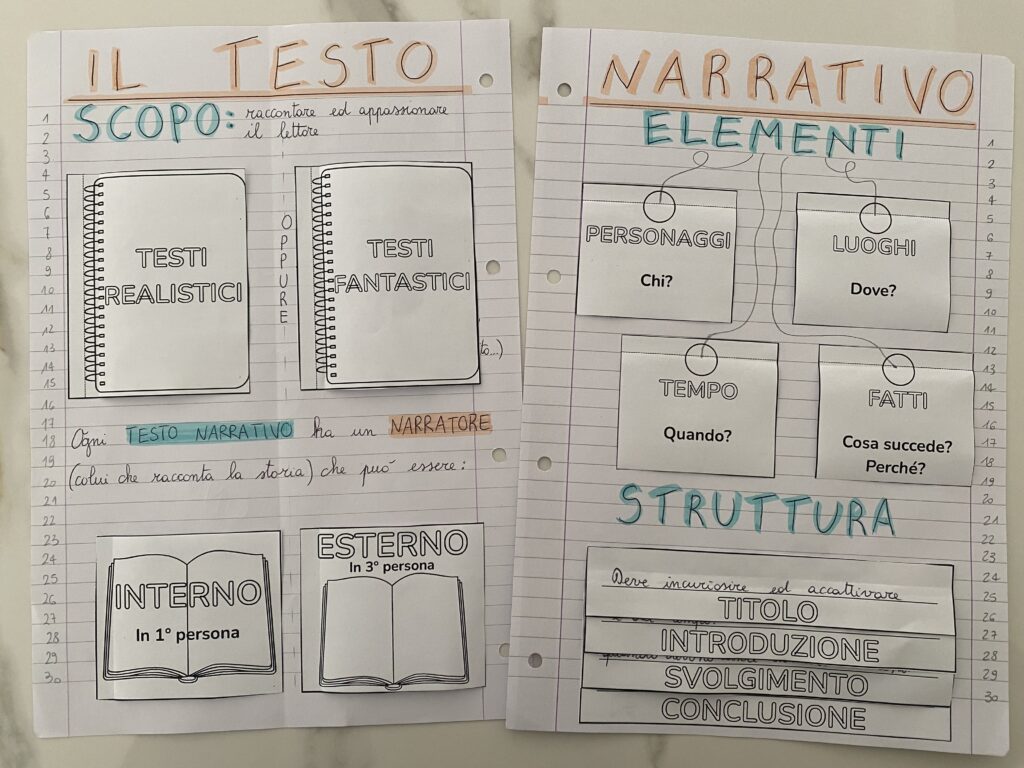 IL TESTO
SCOPO: raccontare ed appassionare
il lettore
TESTI
REALISTICI
OPPURE
TESTI
FANTASTICI
to...)
Ogni TESTO NARRATIVO ha un NARRATORE
(colui che racconta la storia) che può essere:
INTERNO
In 1° persona
ESTERNO
In 3° persona
1
2
3
4
5
6
7
8
9
10
11
12
13
14
15
16
17
18
19
20
21
22
23
24
25
26
27
28
29
30
NARRATIVO
ELEMENTI
PERSONAGGI
Chi?
LUOGHI
Dove?
TEMPO
Quando?
FATTI
Cosa succede?
Perché?
STRUTTURA
Deve incuriosire ed accattivare
TITOLO
INTRODUZIONE
SVOLGIMENTO
CONCLUSIONE
1
2
3
4
5
6
7
8
9
10
11
12
13
14
15
16
17
18
19
20
21
22
23
24
25
26
27
28
29
30